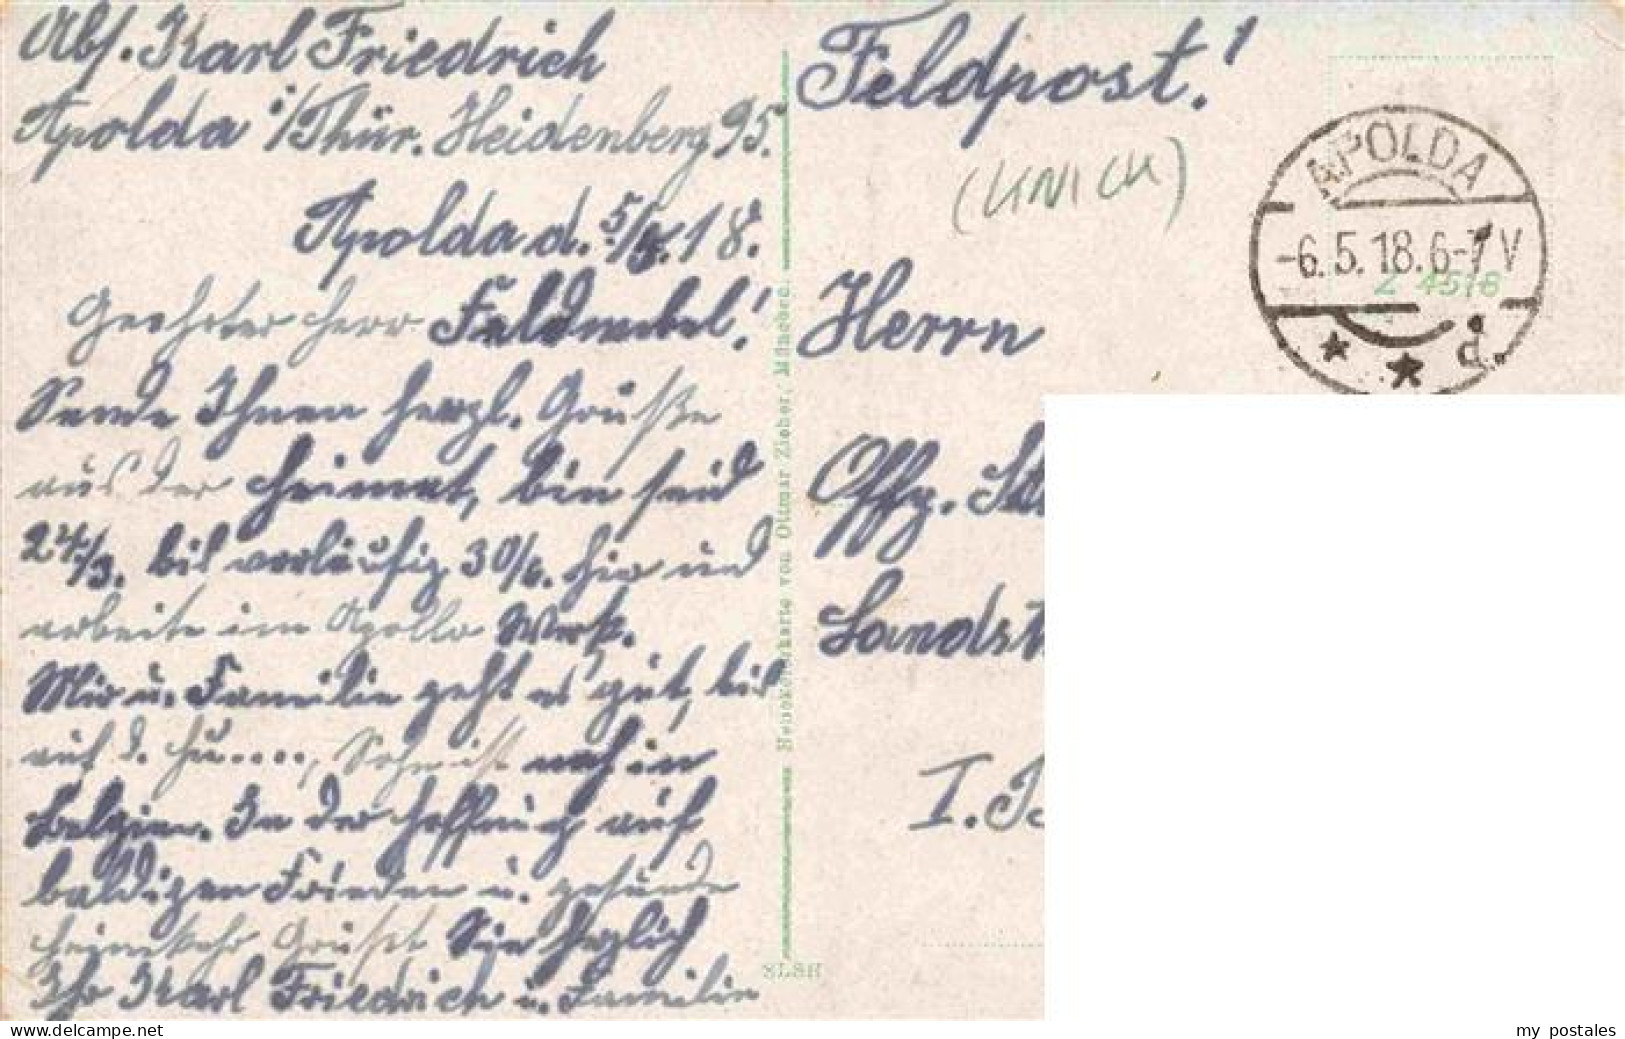 Abs. Karl Friedrich
Apolda i/Thür. Heidenberg 95.
Apolda d. 5/5.18.
Geehrter Herr Feldwebel!
Sende Ihnen herzl. Grüße
aus der Heimat, bin seid
24/3. bis vorläufig 30/6. hir und
arbeite im Apollo Werk.
Mir u. Familie geht es gut, bis
auf d. Hu...., Sohn ist noch in
Belgien. In der Hoffnung auf
baldigen Frieden u. gesunde
Heimkehr Grüßt Sie herzlich
Ihr Karl Friedrich u. Familie
Heliokolorkarte von Ottmar Zieher, München.
Feldpost!
APOLDA
-6.5.18.6-7V
d.
Herrn
Offz.
Landst
I.
my postales